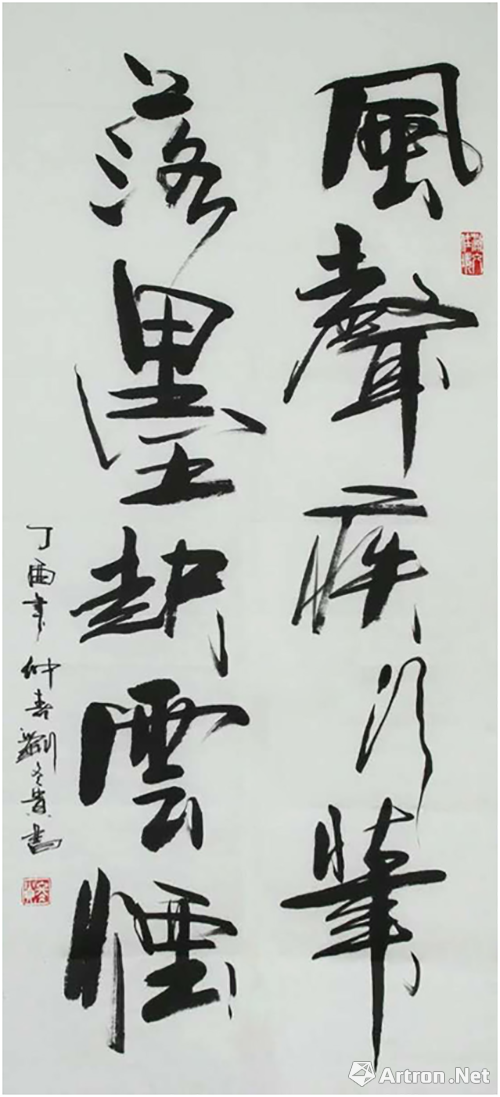 風聲疾行筆
落墨起雲煙
丁酉年仲春劉文貴書
Artron.Net